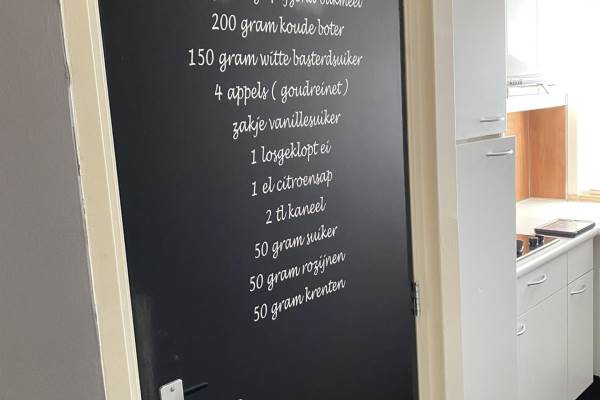 200 gram koude boter
150 gram witte basterdsuiker
4 appels ( goudreinet )
zakje vanillesuiker
1 losgeklopt ei
1 el citroensap
2 tl kaneel
50 gram suiker
50 gram rozijnen
50 gram krenten